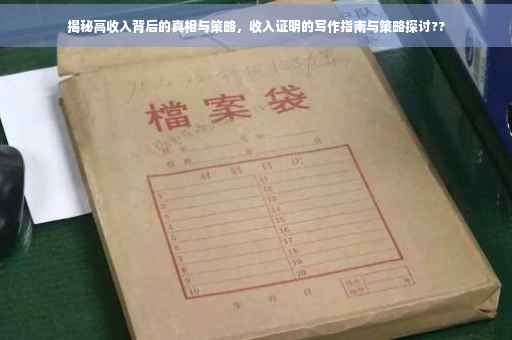 揭秘高收入背后的真相与策略，收入证明的写作指南与策略探讨??
檔案袋
材料目次
1 11
2 12
3 13
4 14
5 15
6 16
7 17
8 18
9 19
10 20
年 月 日